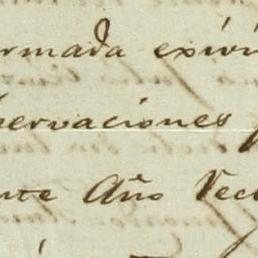 ormada exivi
servaciones
nte Año Vec